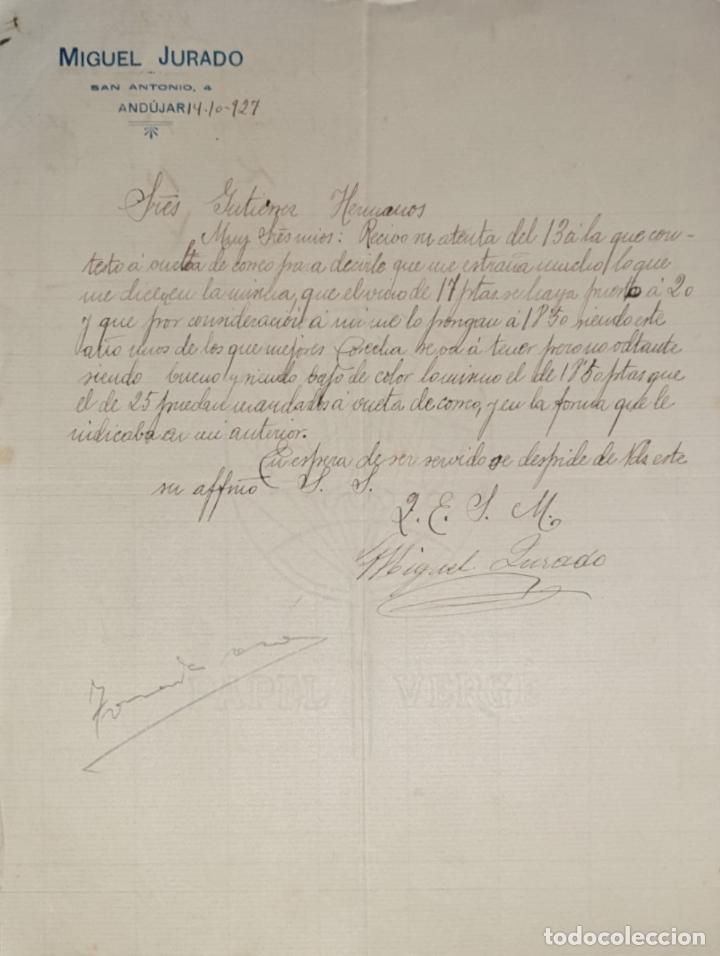 MIGUEL JURADO
SAN ANTONIO, 4
ANDÚJAR 14-10-927
Sres Gutierrez Hermanos
Muy Sres mios: Recivo su atenta del 13 á la que con-
testo á vuelta de correo para decirle que me estraña mucho lo que
me dice, en la misma, que el vino de 17 ptas. se haya puesto á 20
y que por consideración á mi me lo pongan á 18'50 siendo este
año unos de los que mejores Cosecha se va á tener pero no odtante
siendo bueno y siendo bajo de color lo mismo el de 18'50 ptas que
el de 25 puedan mandarlos á vueta de correo, y en la forma que le
indicaba en mi anterior.
En espera de ser servido se despide de Vds este
su affmo S. S.
Q. E. S. M.
Miguel Jurado
PAPEL VERGÉ
todocoleccion